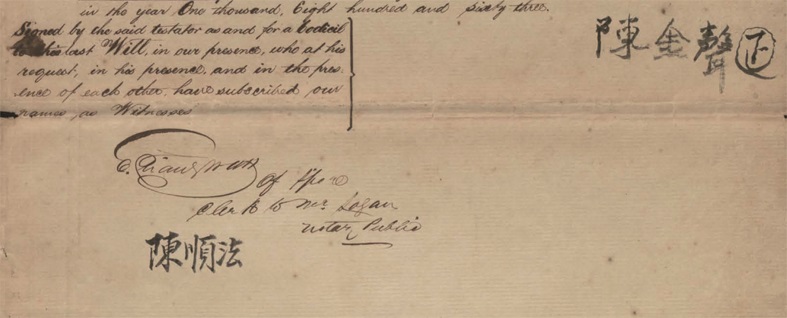 in the year One thousand, Eight hundred and sixty three.
Signed by the said testator as and for a Codicil
to his last Will, in our presence, who at his
request, in his presence, and in the pres-
ence of each other, have subscribed our
names as Witnesses
陳金聲
of
Clerk to Mr. Logan
Notary Public
陳順法